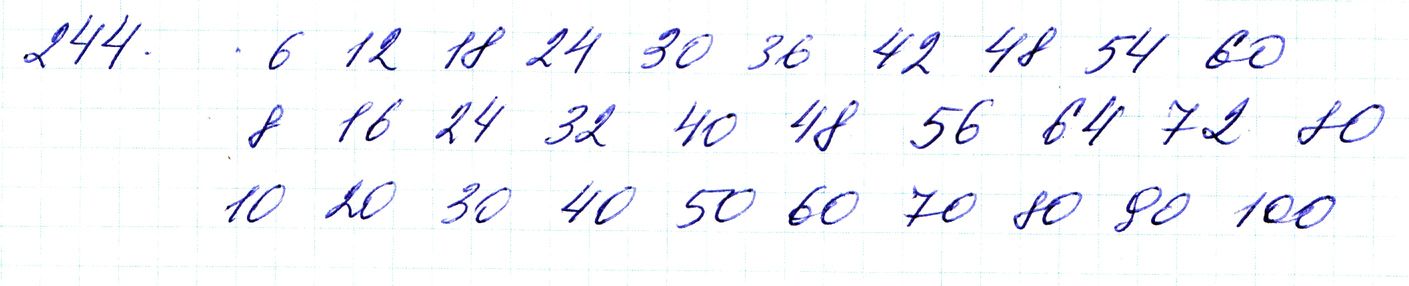 244. 6 12 18 24 30 36 42 48 54 60
8 16 24 32 40 48 56 64 72 80
10 20 30 40 50 60 70 80 90 100